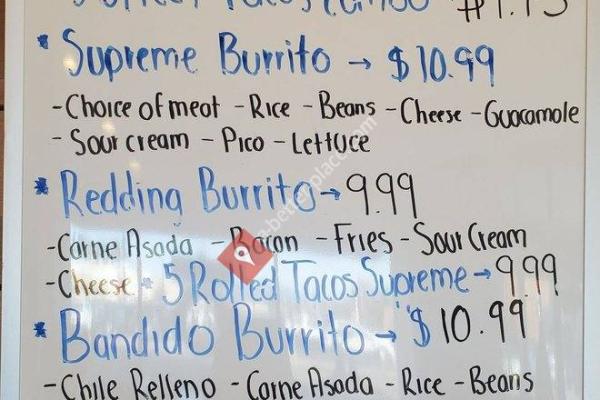 Tacos Combo $7.75
* Supreme Burrito → $10.99
- Choice of meat - Rice - Beans - Cheese - Guacamole
- Sour cream - Pico - Lettuce
* Redding Burrito → 9.99
- Carne Asada - Bacon - Fries - Sour Cream
- Cheese * 5 Rolled Tacos Supreme → 9.99
* Bandido Burrito → $10.99
- Chile Relleno - Carne Asada - Rice - Beans